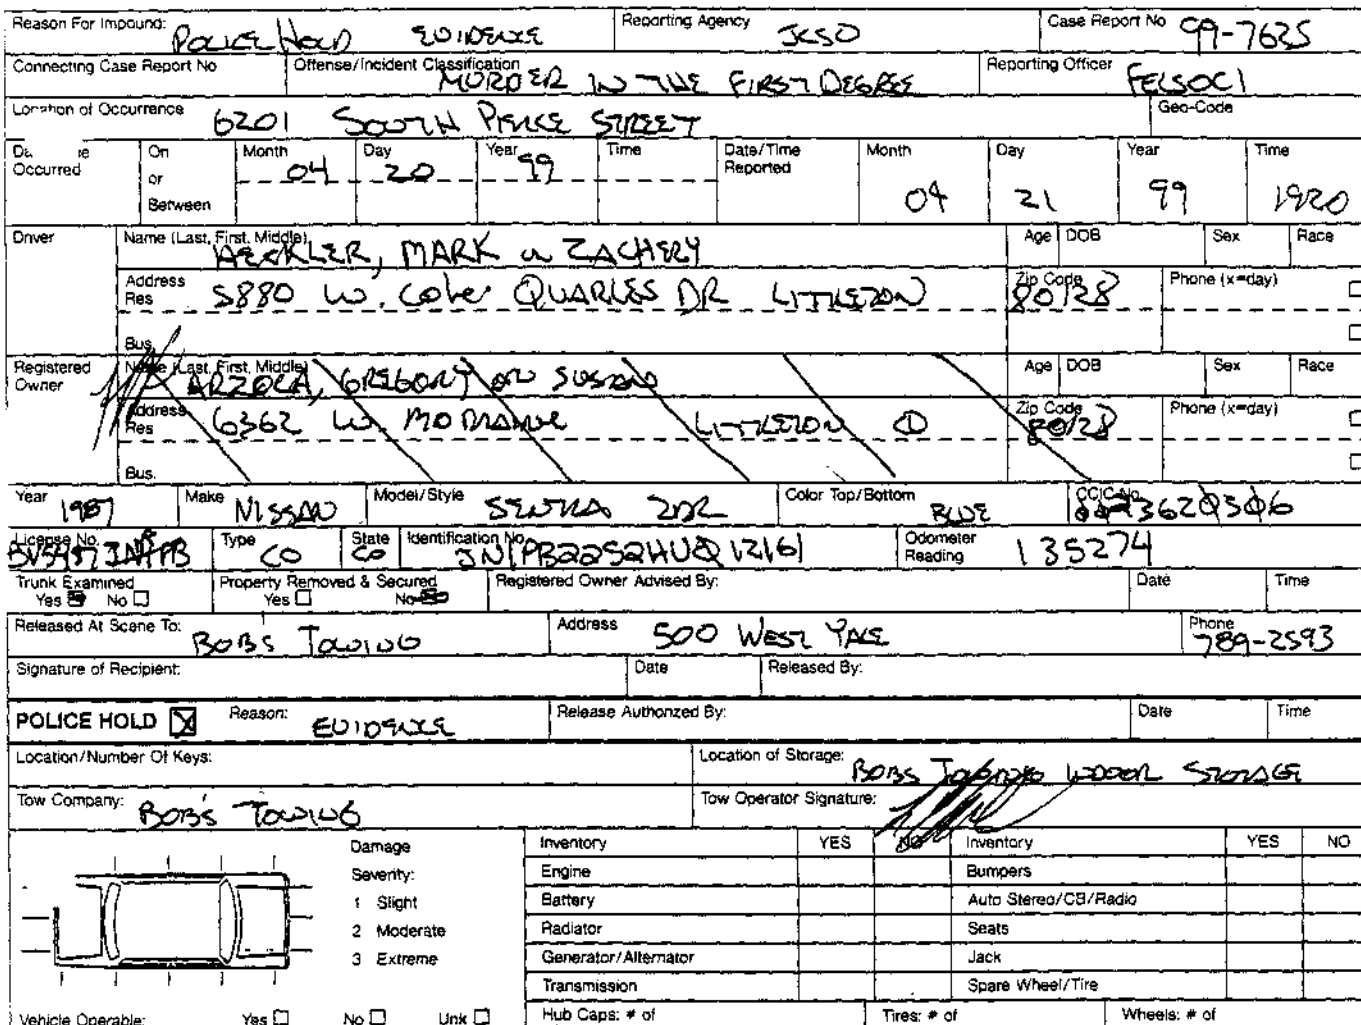 Reason For Impound: POLICE HOLD EVIDENCE Reporting Agency JCSO Case Report No 99-7625
Connecting Case Report No Offense/Incident Classification MURDER IN THE FIRST DEGREE Reporting Officer FELSOCI
Location of Occurrence 6201 SOUTH PIERCE STREET Geo-Code
Occurred On or Between Month 04 Day 20 Year 99 Time Date/Time Reported Month 04 Day 21 Year 99 Time 1920
Driver Name (Last, First, Middle) HECKLER, MARK or ZACHERY Age DOB Sex Race
Address Res 5880 W. Cole QUARLES DR LITTLETON Zip Code 80128 Phone (x=day)
Bus.
Registered Owner Name (Last, First, Middle) ARZOLA, GREGORY OR SUSAN Age DOB Sex Race
Address Res 6362 W. LITTLETON CO Zip Code 80128 Phone (x=day)
Bus.
Year 1987 Make NISSAN Model/Style SENTRA 2DR Color Top/Bottom BLUE CCIC No.
License No. Type CO State CO Identification No. JN1PB22S2HU012161 Odometer Reading 135274
Trunk Examined Yes No Property Removed & Secured Yes No Registered Owner Advised By: Date Time
Released At Scene To: BOBS TOWING Address 500 WEST YALE Phone 789-2593
Signature of Recipient: Date Released By:
POLICE HOLD X Reason: EVIDENCE Release Authorized By: Date Time
Location/Number Of Keys: Location of Storage: BOBS TOWING INDOOR STORAGE
Tow Company: BOB'S TOWING Tow Operator Signature:
Damage Inventory YES NO Inventory YES NO
Severity: Engine Bumpers
1 Slight Battery Auto Stereo/CB/Radio
2 Moderate Radiator Seats
3 Extreme Generator/Alternator Jack
Transmission Spare Wheel/Tire
Vehicle Operable: Yes No Unk Hub Caps: # of Tires: # of Wheels: # of